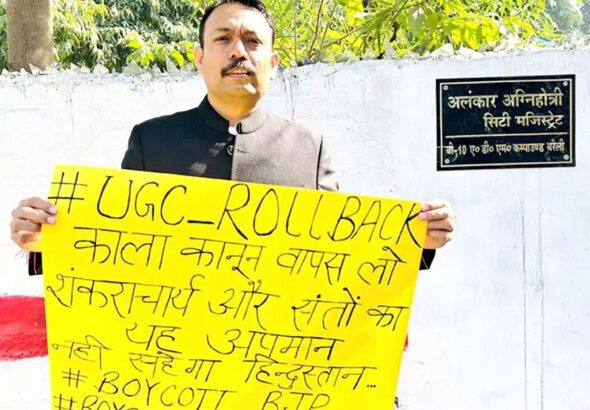 अलंकार अग्निहोत्री
सिटी मजिस्ट्रेट
बी-10 ए० डी० एम० कम्पाउण्ड बरेली
#UGC_ROLLBACK
काला कानून वापस लो
शंकराचार्य और संतों का
यह अपमान
नही सहेगा हिन्दुस्तान...
# BOYCOTT BJP